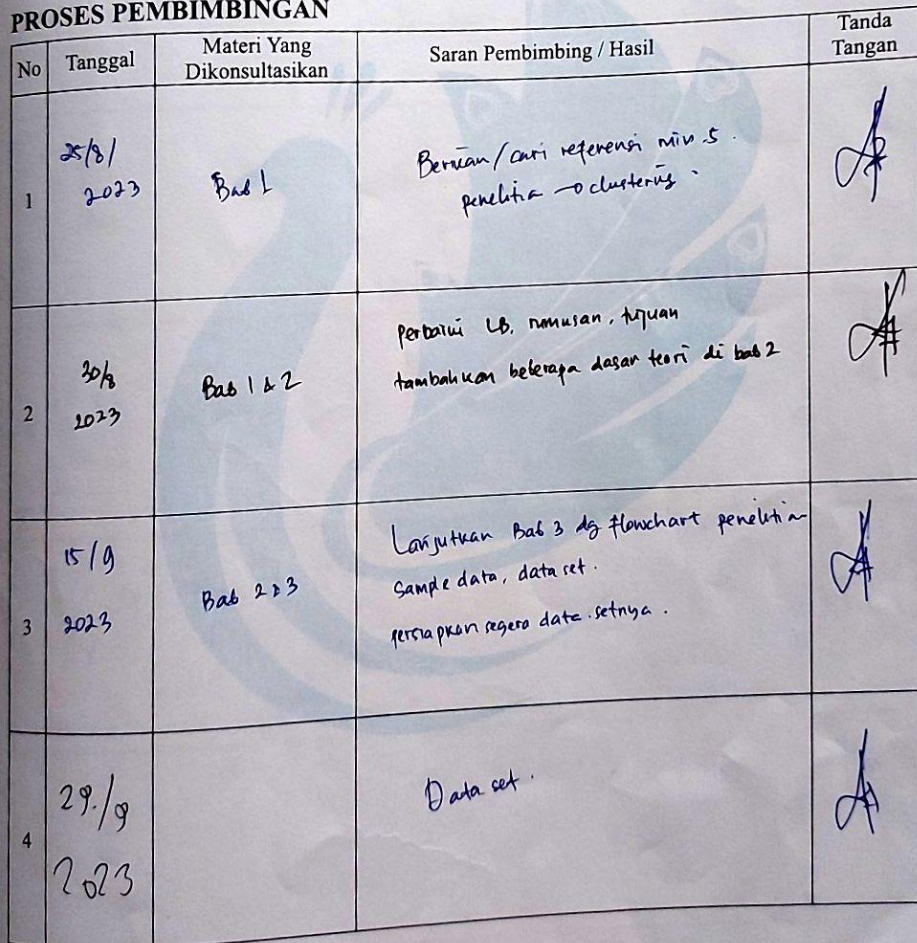 PROSES PEMBIMBINGAN
No
Tanggal
Materi Yang
Dikonsultasikan
Saran Pembimbing / Hasil
Tanda
Tangan
1
25/8/
2023
Bab 1
Berikan / cari referensi min. 5
penelitia → clustering.
2
30/8
2023
Bab 1 & 2
Perbaiki LB, rumusan, tujuan
tambahkan beberapa dasar teori di bab 2
3
15/9
2023
Bab 2 & 3
Lanjutkan Bab 3 dg flowchart penelitian
Sample data, data set.
persiapkan segera data setnya.
4
29./9
2023
Data set.